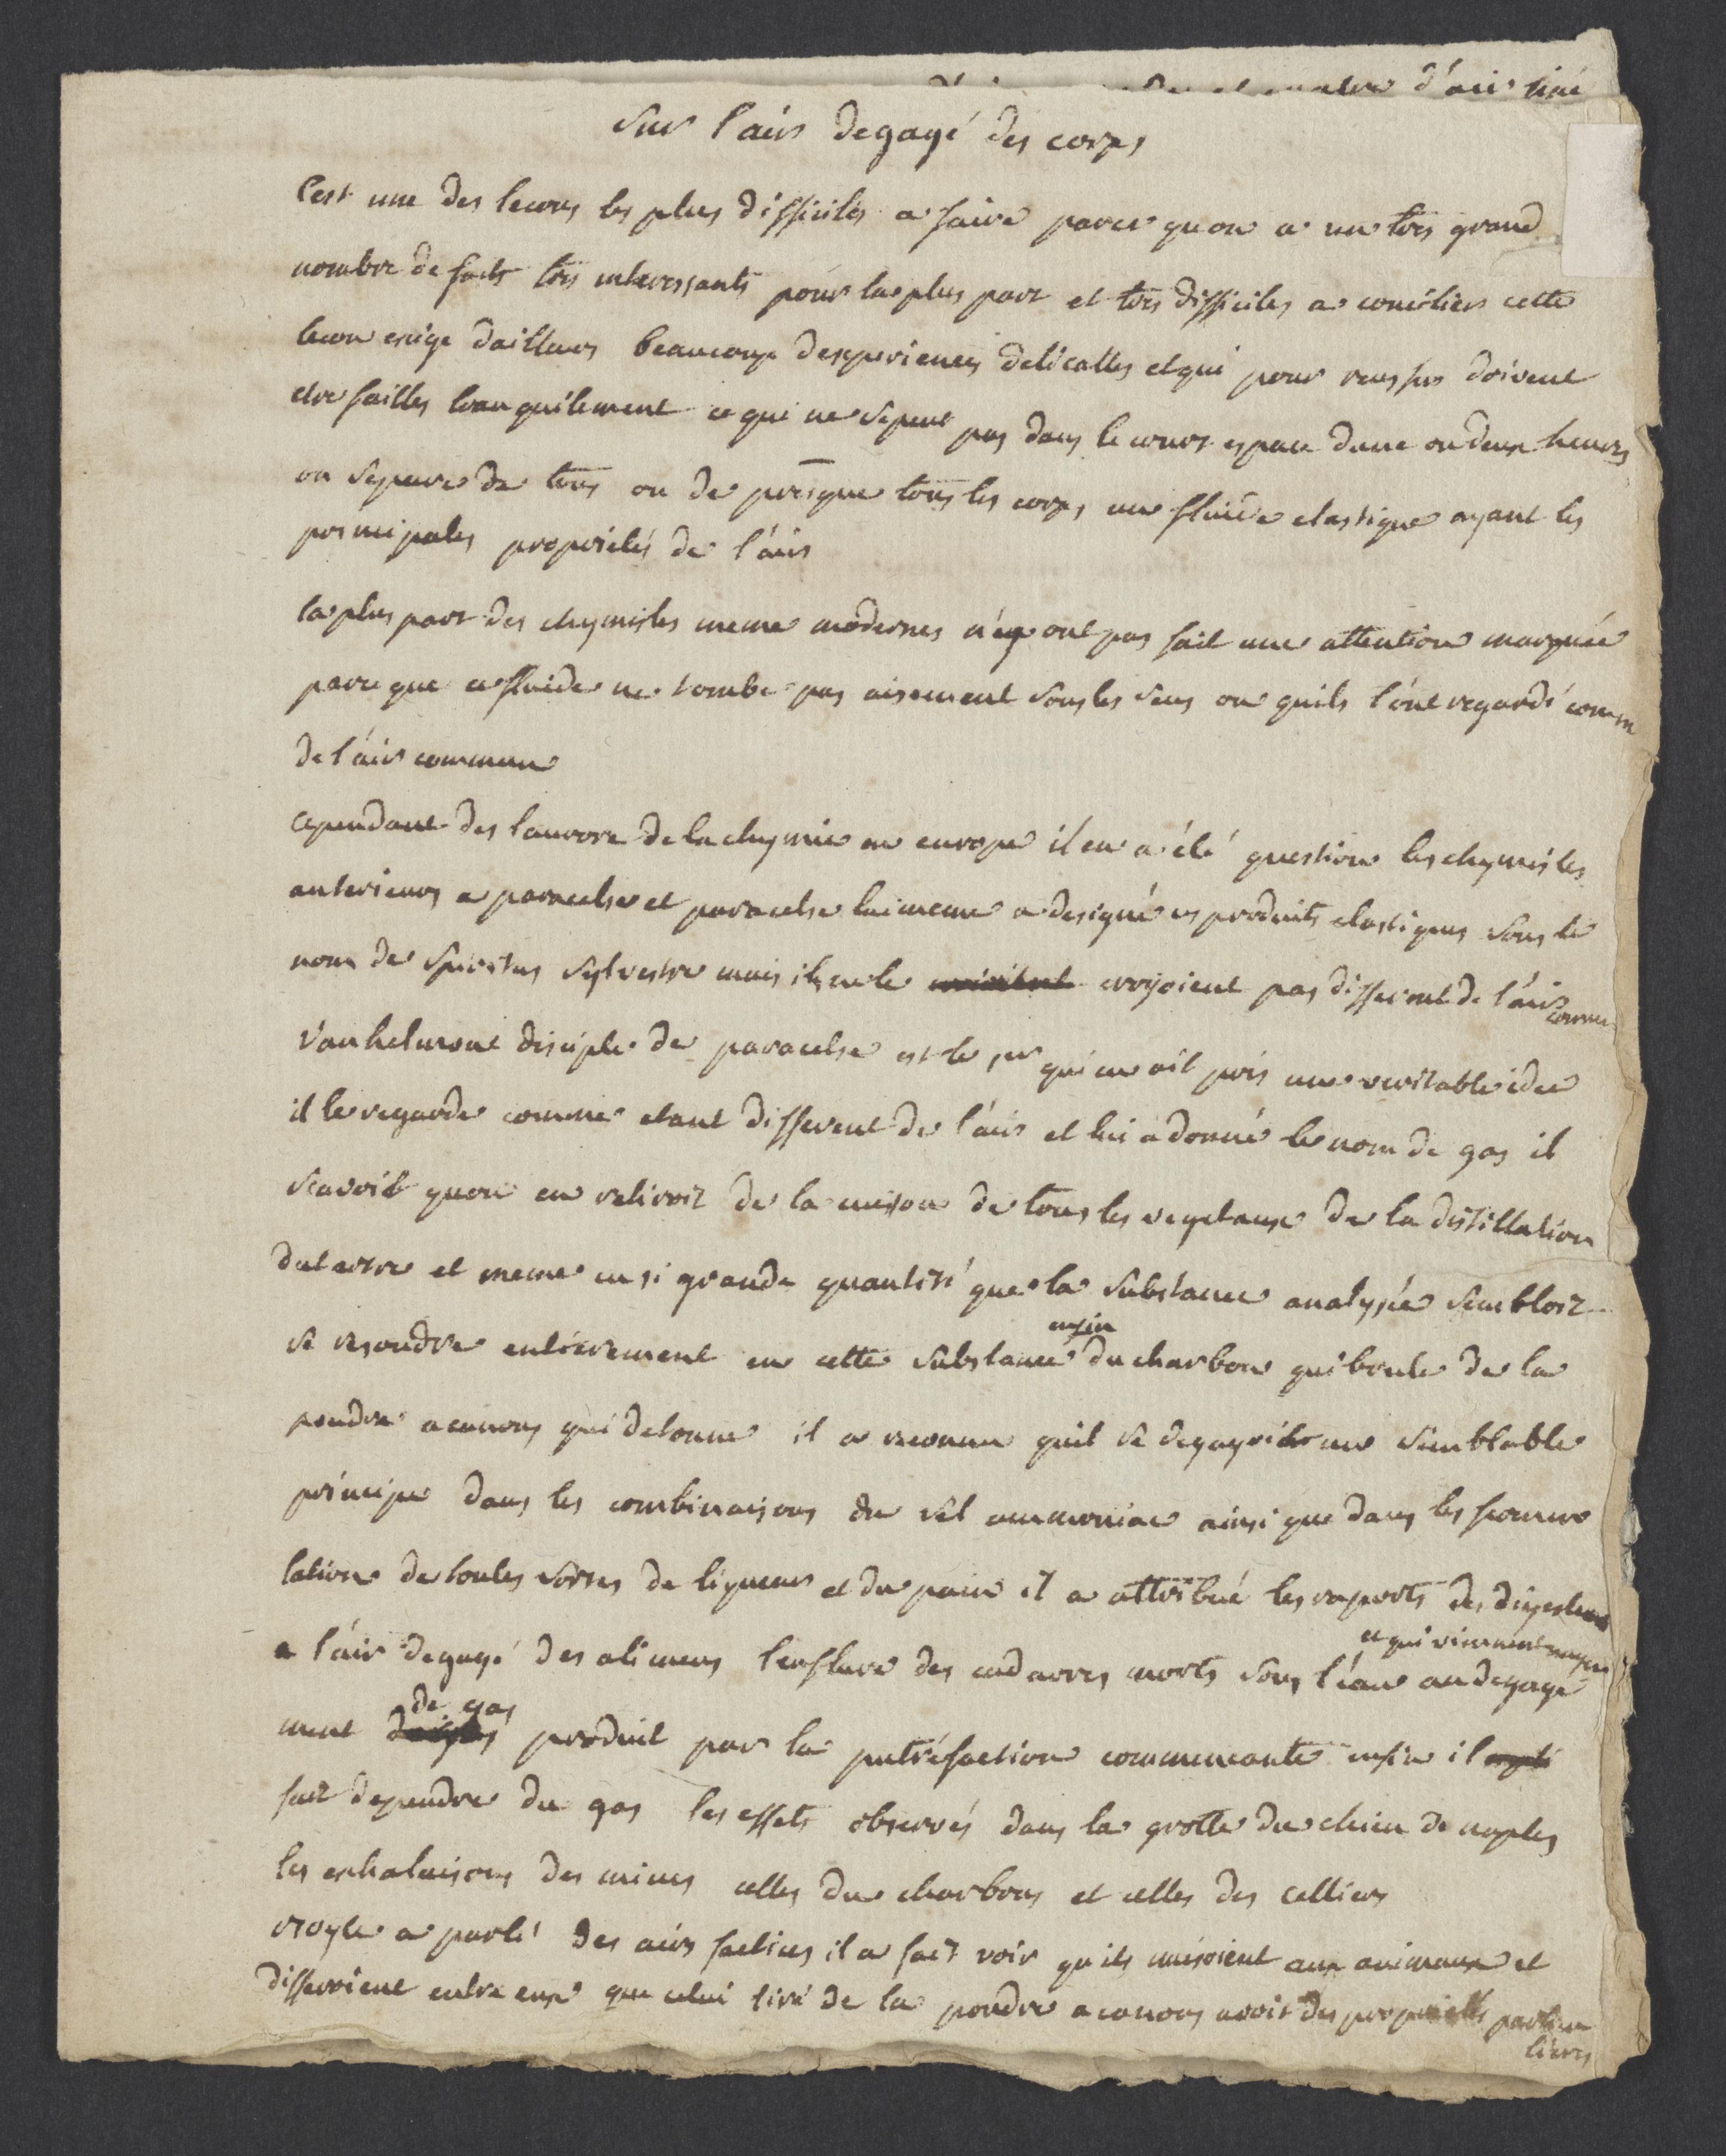 d'air tiré
Sur l'air degagé des corps
C'est une des lecons les plus difficiles a faire parce quon a un tres grand
nombre de faits tres interessants pour la plus part et tres difficiles a concilier cette
lecon exige dailleurs beaucoup dexperiences delicattes et qui pour reussir doivent
etre faittes tranquilement ce qui ne se peut pas dans le court espace dune ou deux heures
on separe de tous ou de presque tous les corps un fluide elastique ayant les
principales proprietés de l'air
la plus part des chymistes meme modernes n'y ont pas fait une attention marquée
parce que ce fluide ne tombe pas aisement sous les sens ou quils l'ont regardé comm
de l'air commun
cependant des laurore de la chymie en europe il en a été question les chymistes
anterieurs a paracelse et paracelse lui meme a designé ces produits elastiques sous le
nom de spiritus sylvestre mais ils ne le croyoient pas different de l'air commun
Vanhelmont disciple de paracelse est le per qui en ait pris une veritable idee
il le regarde comme etant different de l'air et lui a donné le nom de gas il
scavoit quon en retiroit de la cuison de tous les vegetaux de la distillation
du tartre et meme en si grande quantité que la substance analysée sembloit
se resoudre entierement en cette substance enfin du charbon qui brule de la
poudre a canons qui detonne il a reconnu quil se degageoit un semblable
principe dans les combinaisons du sel ammoniac ainsi que dans les fermen
tation de toutes sortes de liqueurs et du pain il a attribué les raports des digestions
a l'air degagé des alimens l'enflure des cadavres morts sous l'eau et qui viennent nager au degage
ment de gas produit par la putréfaction commencante enfin il
fait dependre du gas les effets observés dans la grotte du chien de naples
les exhalaisons des mines celles du charbons et celles des celliers
Boyle a parlé des airs factices il a fait voir qu'ils nuisoient aux animaux et
differoient entre eux que celui tiré de la poudre a canons avoit des proprietés particu
lieres